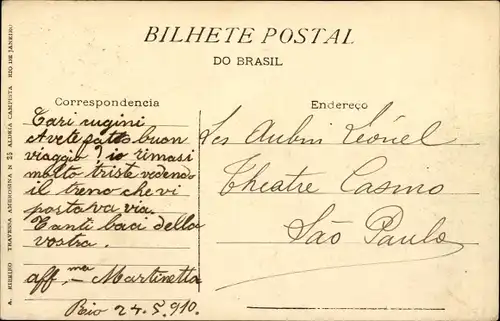 BILHETE POSTAL
DO BRASIL
Correspondencia
Cari cugini
Avete fatto buon
viaggio? io rimasi
molto triste vedendo
il treno che vi
portava via.
Tanti baci della
vostra.
aff.ma Martinetta
Rio 24.5.910.
Endereço
Les Aubin Léonel
Theatre Casino
São Paulo
A. RIBEIRO TRAVESSA AMBROSINA N 25 ALDEIA CAMPISTA RIO DE JANEIRO